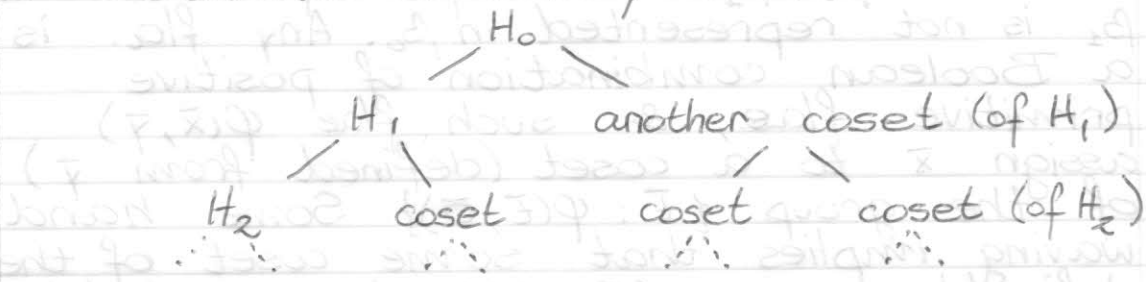 H₀
H₁ another coset (of H₁)
H₂ coset coset coset (of H₂)